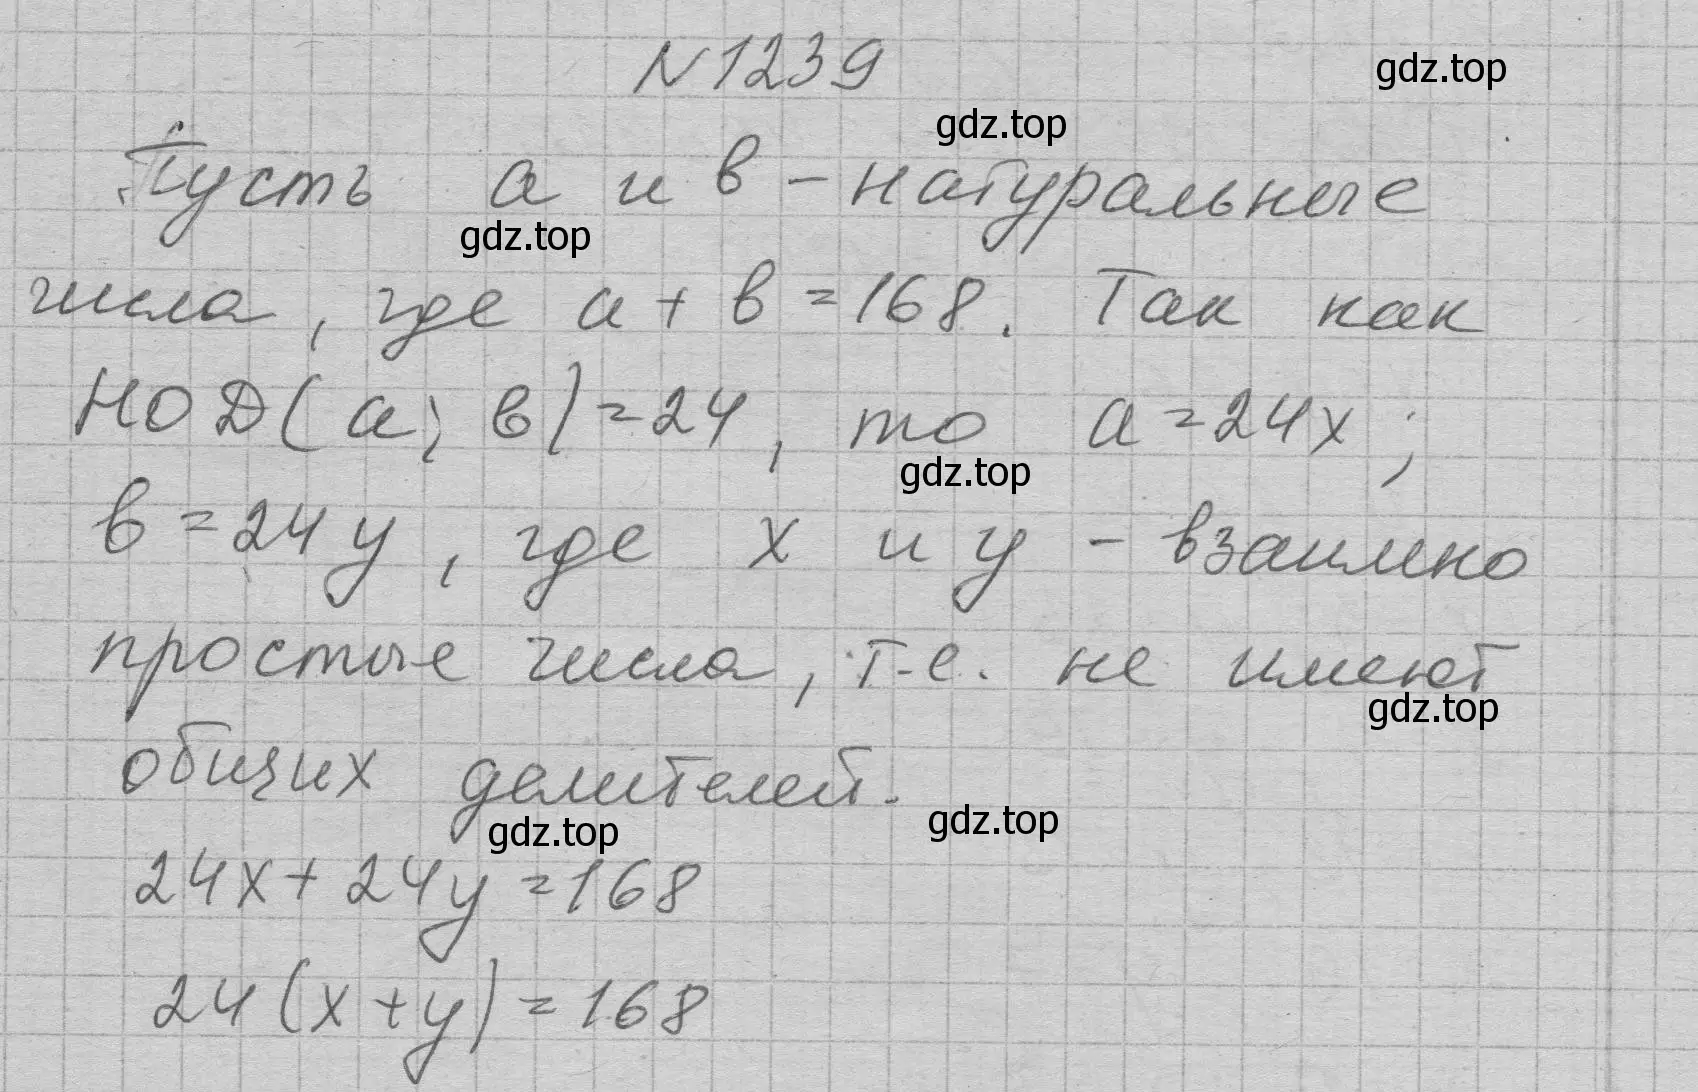 N 1239
gdz.top
gdz.top
Пусть а и в - натуральные
gdz.top
числа, где а + в = 168. Так как
НОД(а; в) = 24, то а = 24х;
gdz.top
в = 24у, где х и у - взаимно
простые числа, т.е. не имеют
gdz.top
общих делителей.
gdz.top
gdz.top
24х + 24у = 168
24(х + у) = 168